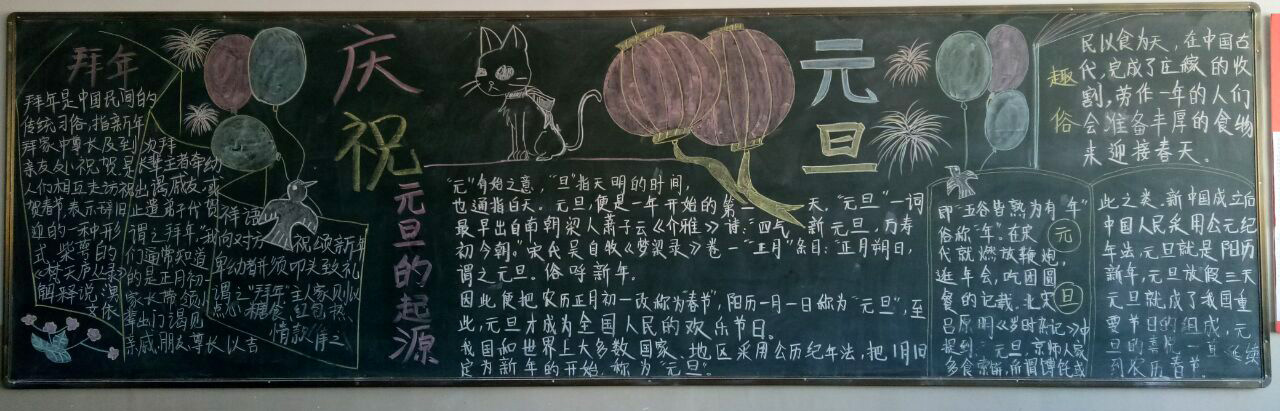 拜年
拜年是中国民间的
传统习俗,指新年
拜家中尊长及到
亲友
人们相互走访祝
贺春节,表示辞旧
迎的一种形
式,柴萼的
《梵天庐丛录》
解释说:"
出谒戚友,或
止遣弟子代贺
谓之拜年"我
们通常知道
的是正月初一
家长带领
辈出门谒见
亲戚、朋友、尊长,以吉
祥语
向对方祝颂新年
卑幼者并须叩头致礼
谓之"拜年",主人家则以
点心、糖食、红包热
情款
庆祝
元旦
元旦的起源
"元"有始之意,"旦"指天明的时间,
也通指白天。元旦,便是一年开始的第一天。"元旦"一词
最早出自南朝梁人萧子云《介雅》诗:"四气新元旦,万寿
初今朝。"宋代吴自牧《梦梁录》卷一"正月"条目:"正月朔日,
谓之元旦。俗呼新年。
因此便把农历正月初一改称为"春节",阳历一月一日称为"元旦",至
此,元旦才成为全国人民的欢乐节日。
我国和世界上大多数国家、地区采用公历纪年法,把1月1日
定为新年的开始,称为"元旦"。
趣俗
民以食为天,在中国古
代,完成了庄稼的收
割,劳作一年的人们
会准备丰厚的食物
来迎接春天。
即"五谷皆熟为有年"
俗称"年"。在宋
代就燃放鞭炮,
逛年会,吃团圆
食的记载。北宋
吕原明《岁时杂记》中
提到:"元旦京师人家
多食索饼,所谓馎饦或
元旦
此之类。新中国成立后
中国人民采用公元纪
年法,元旦就是阳历
新年,元旦放假三天
元旦就成了我国重
要节日的组成,元
旦的喜庆一直
到农历春节。